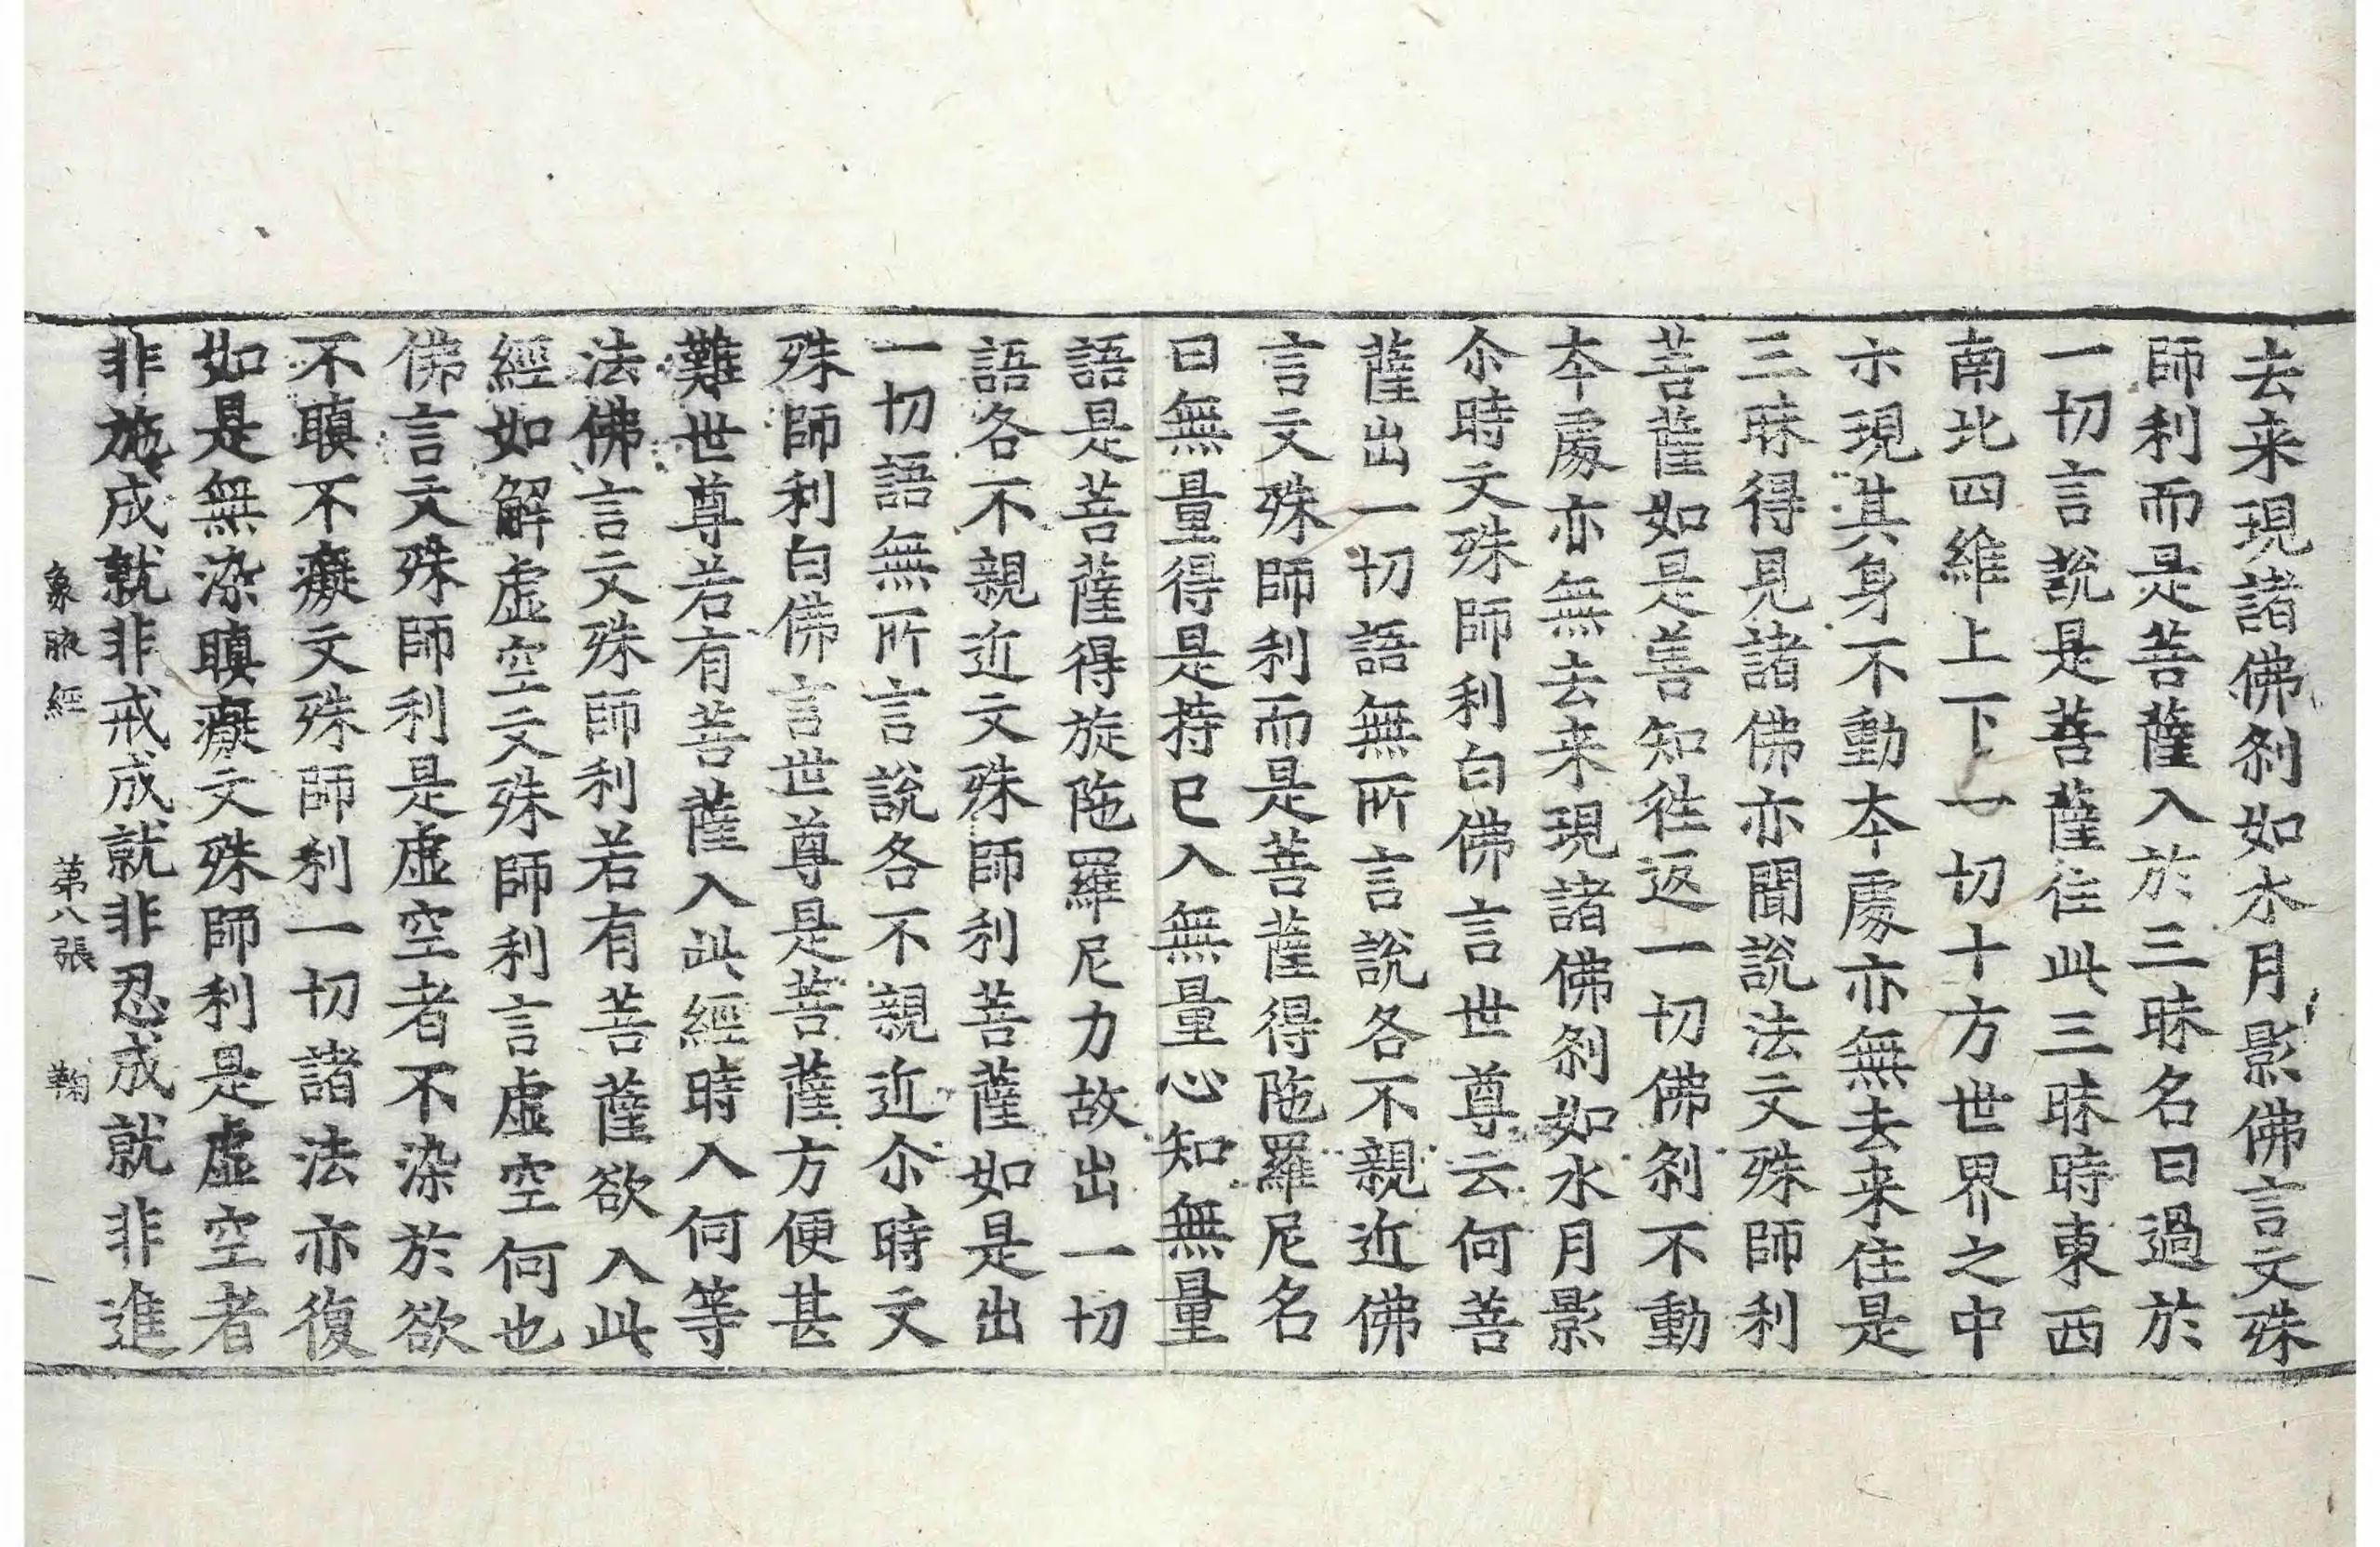 去来現諸佛刹如水月影佛言文殊
師利而是菩薩入於三昧名曰過於
一切言說是菩薩住此三昧時東西
南北四維上下一切十方世界之中
示現其身不動本處亦無去来住是
三昧得見諸佛亦聞說法文殊師利
菩薩如是善知往返一切佛刹不動
本處亦無去来現諸佛刹如水月影
尒時文殊師利白佛言世尊云何菩
薩出一切語無所言說各不親近佛
言文殊師利而是菩薩得陁羅尼名
曰無量得是持已入無量心知無量
語是菩薩得旋陁羅尼力故出一切
語各不親近文殊師利菩薩如是出
一切語無所言說各不親近尒時文
殊師利白佛言世尊是菩薩方便甚
難世尊若有菩薩入此經時入何等
法佛言文殊師利若有菩薩欲入此
經如解虛空文殊師利言虛空何也
佛言文殊師利是虛空者不染於欲
不瞋不癡文殊師利一切諸法亦復
如是無染瞋癡文殊師利是虛空者
非施成就非戒成就非忍成就非進
象腋經　第八張　鞠